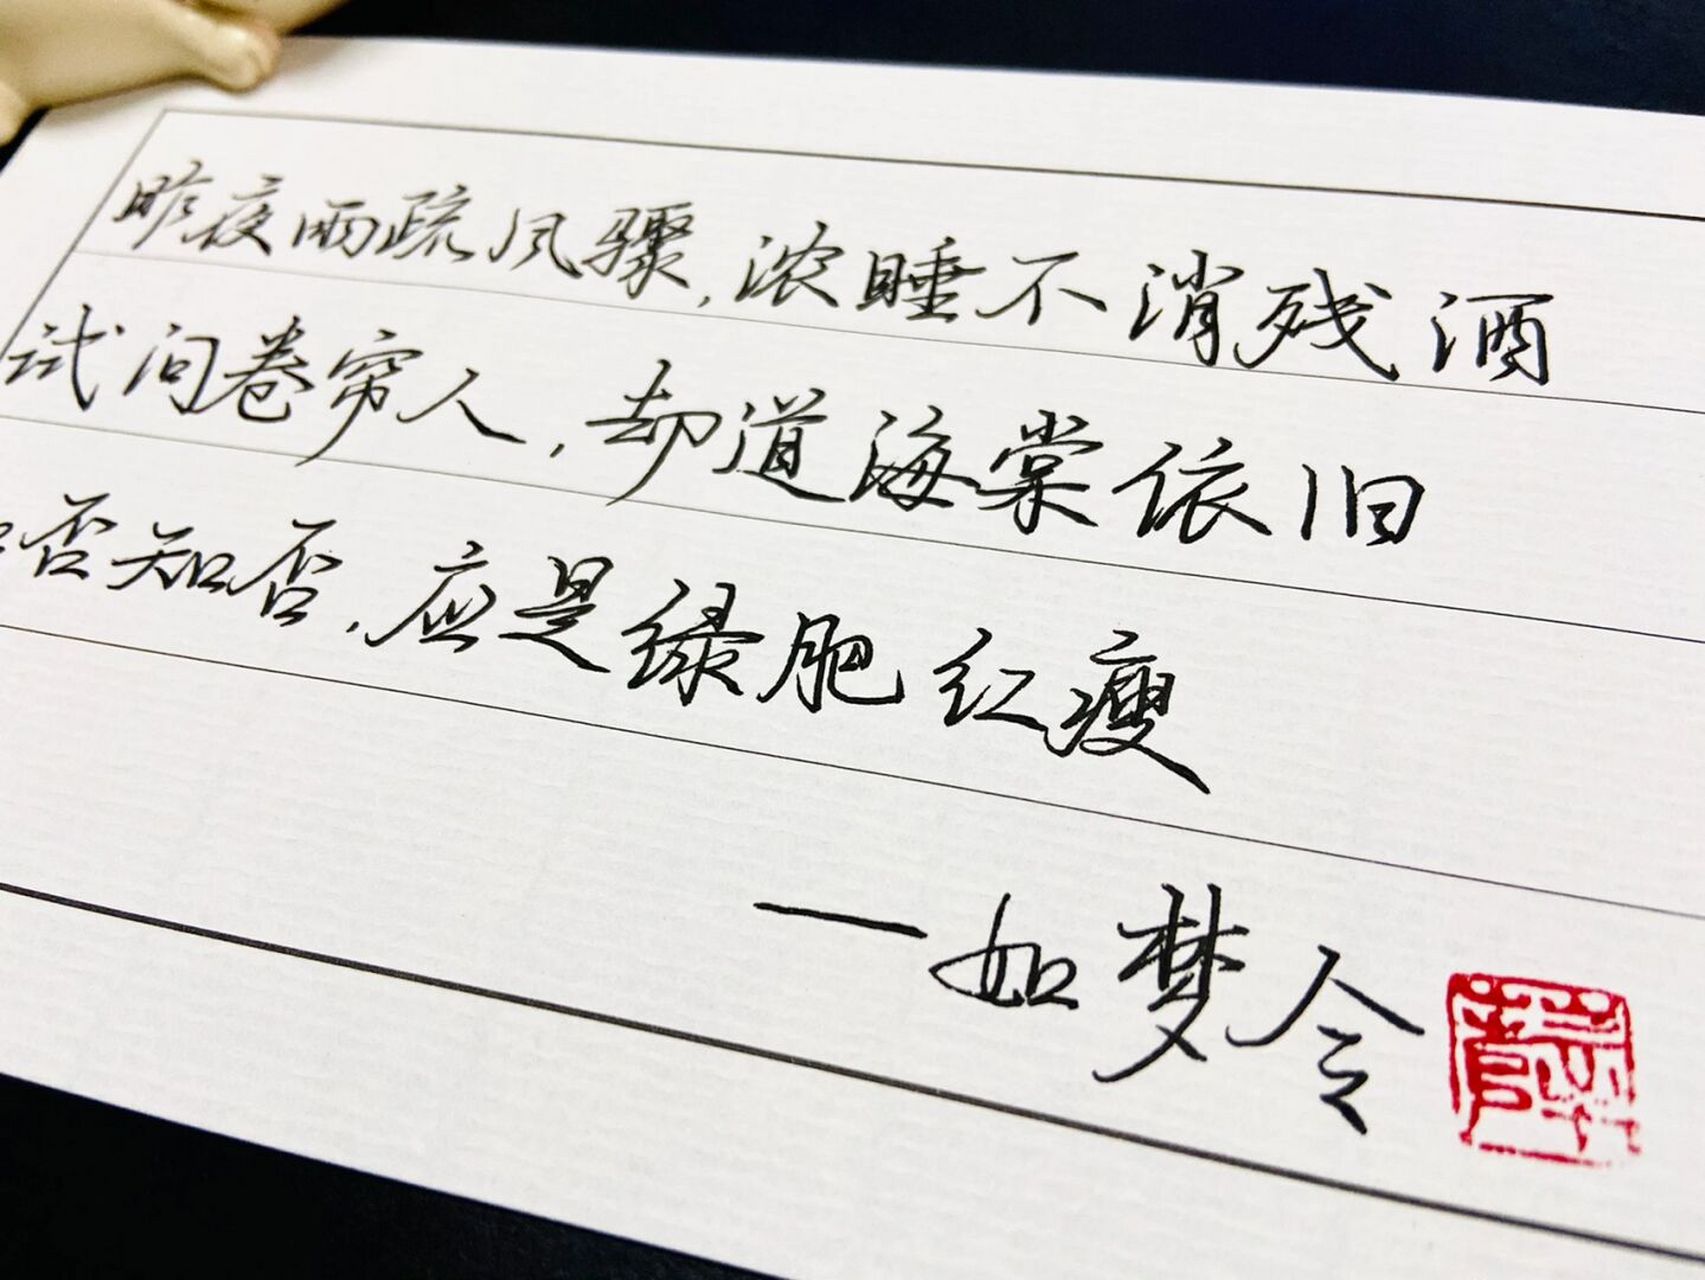 昨夜雨疏风骤,浓睡不消残酒
试问卷帘人,却道海棠依旧
否知否,应是绿肥红瘦
一如梦令